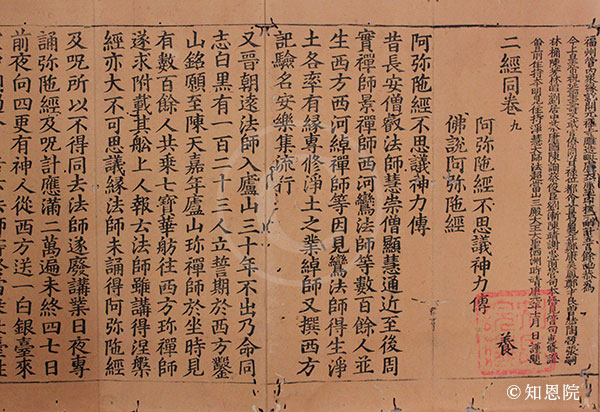 二經同卷 九
阿弥陁經不思議神力傳 養
佛說阿弥陁經
阿弥陁經不思議神力傳
昔長安僧叡法師慧崇僧顯慧通近至後周
實禪師景禪師西河鸞法師等數百餘人並
生西方西河綽禪師等因見鸞法師得生淨
土各率有緣專修淨土之業綽師又撰西方
記驗名安樂集流行
又晉朝遠法師入廬山三十年不出乃命同
志白黑有一百二十三人立誓期於西方鑿
山銘願至陳天嘉年廬山珍禪師於坐時見
有數百餘人共乘七寶華舫往西方珍禪師
遂求附載其舩上人報云法師雖講得涅槃
經亦大不可思議緣法師未誦得阿弥陁經
及呪所以不得同去法師遂廢講業日夜專
誦弥陁經及呪計應滿二萬遍未終四七日
前夜向四更有神人從西方送一白銀臺來
© 知恩院